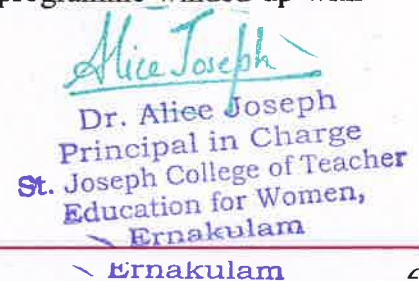 programme winded up with
Alice Joseph
Dr. Alice Joseph
Principal in Charge
St. Joseph College of Teacher
Education for Women,
Ernakulam
Ernakulam